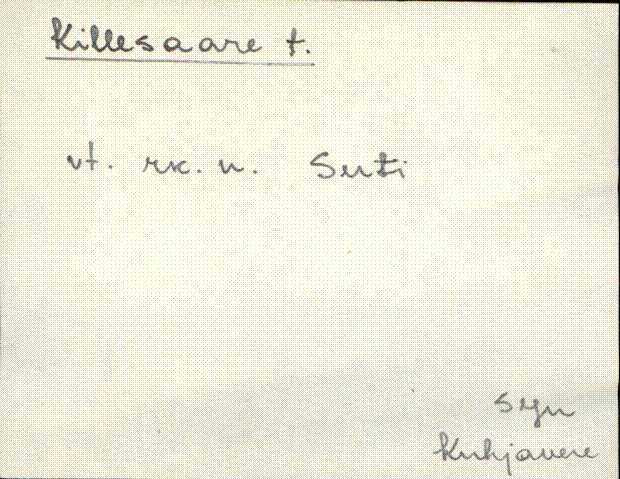 Killesaare t.
vt. rk. n. Surti
SJn
Kuhjavere